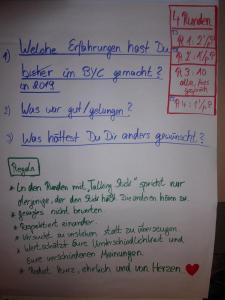 4 Runden
R 1: 2'/P
R 2: 1'/P
R 3: 10
R 4: 1'/P
1) Welche Erfahrungen hast Du
bisher im BYC gemacht?
in 2019
2) Was war gut/gelungen?
3) Was hättest Du Dir anders gewünscht?
Regeln
* In den Runden mit "Talking Stick" spricht nur
derjenige, der den Stick hält. Die anderen hören zu.
* gesagtes nicht bewerten
* Respektiert einander
* Versucht zu verstehen statt zu überzeugen
* Wertschätzt Eure Unterschiedlichkeit und
Eure verschiedenen Meinungen.
* Redet kurz, ehrlich und von Herzen